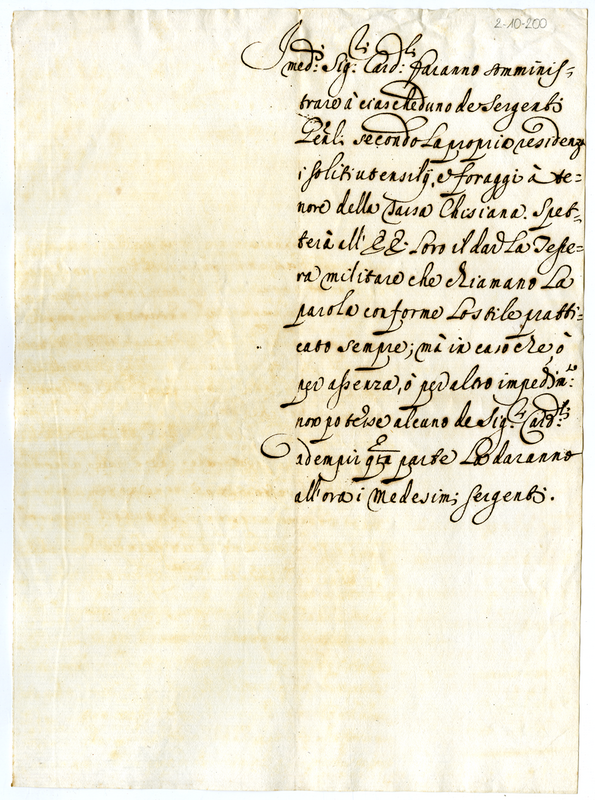 2-10-200
I med:i Sig:ri Card:li faranno somminis-
trare à ciascheduno de Sergenti
Gen̄li secondo la propria residenza
i soliti utensilij, e foraggi à te=
nore della Tassa Chisiana. Spet-
terà all' EE: loro il dar la Tesse-
ra militare che chiamano la
parola conforme lo stile pratti-
cato sempre; mà in caso che, ò
per assenza, ò per altro impedim:to
non potesse alcuno de Sig:ri Card:li
adempir q̄ta parte la daranno
all'ora i Medesimi Sergenti.